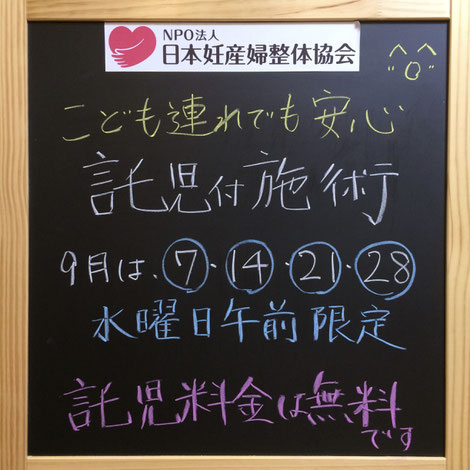 NPO法人
日本妊産婦整体協会
こども連れでも安心
託児付施術
9月は、7・14・21・28
水曜日午前限定
託児料金は無料
です